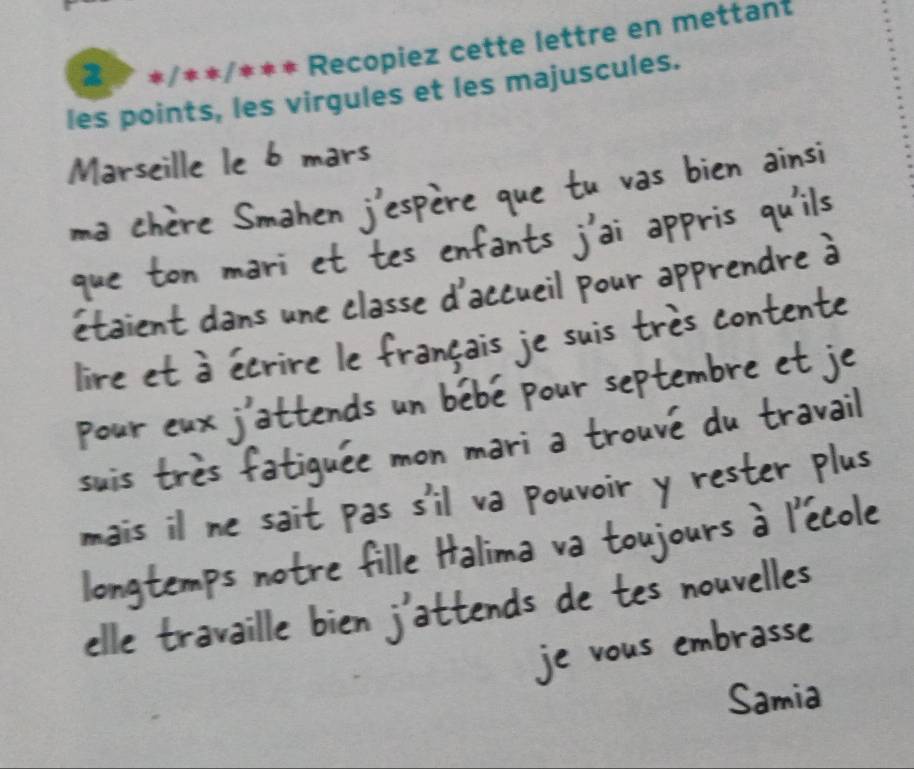 2 */**/*** Recopiez cette lettre en mettant
les points, les virgules et les majuscules.
Marseille le 6 mars
ma chère Smahen j'espère que tu vas bien ainsi
que ton mari et tes enfants j'ai appris qu'ils
étaient dans une classe d'accueil pour apprendre à
lire et à écrire le français je suis très contente
pour eux j'attends un bébé pour septembre et je
suis très fatiguée mon mari a trouvé du travail
mais il ne sait pas s'il va pouvoir y rester plus
longtemps notre fille Halima va toujours à l'école
elle travaille bien j'attends de tes nouvelles
je vous embrasse
Samia